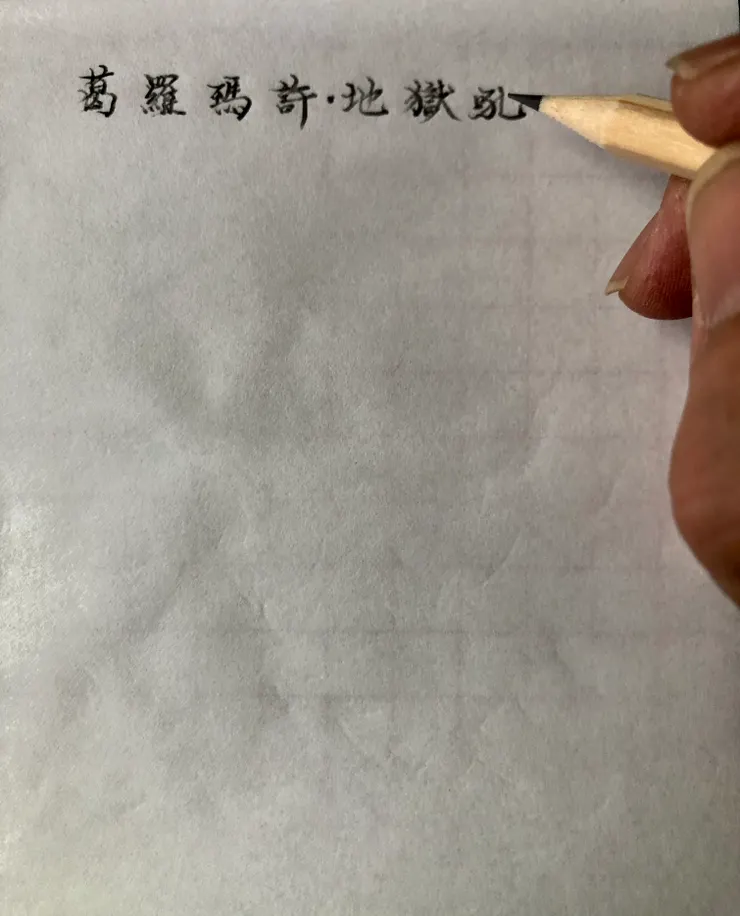 葛羅瑪許·地獄吼